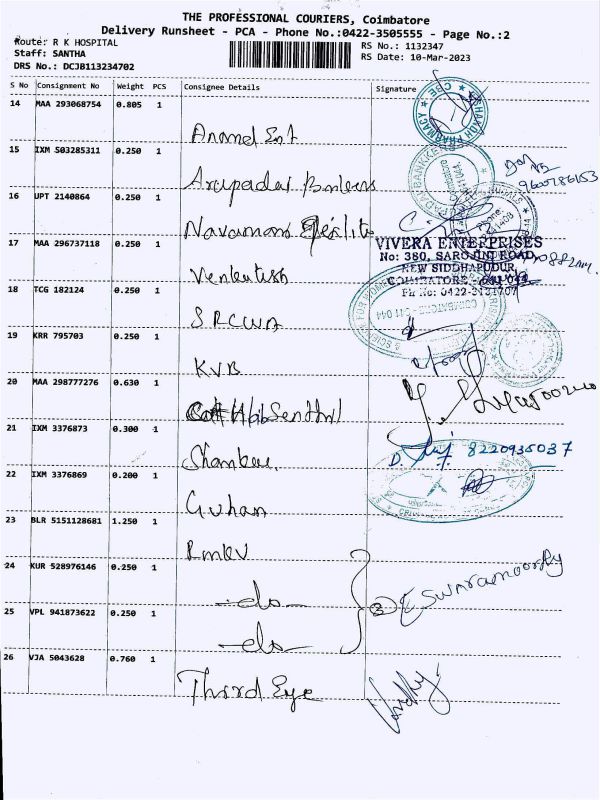 THE PROFESSIONAL COURIERS, Coimbatore
Delivery Runsheet - PCA - Phone No.:0422-3505555 - Page No.:2
Route: R K HOSPITAL
Staff: SANTHA
DRS No.: DCJB113234702
RS No.: 1132347
RS Date: 10-Mar-2023
S No Consignment No Weight PCS Consignee Details Signature
14 MAA 293068754 0.805 1
Anand Ent
15 IXM 503285311 0.250 1
9600786153
16 UPT 2140864 0.250 1
Navamani
17 MAA 296737118 0.250 1
VIVERA ENTERPRISES
No: 380, SAROJINI ROAD,
NEW SIDDHAPUDUR,
COIMBATORE - 641 044
Ph No: 0422-3131707
Venkatesh
18 TCG 182124 0.250 1
SRCWA
19 KRR 795703 0.250 1
KVB
20 MAA 298777276 0.630 1
Senthil
21 IXM 3376873 0.300 1
8220935037
22 IXM 3376869 0.200 1
Guhan
23 BLR 5151128681 1.250 1
Rmkv
24 KUR 528976146 0.250 1
-do-
3 Eswaramoorthy
25 VPL 941873622 0.250 1
-do-
26 VJA 5043628 0.760 1
Third Eye